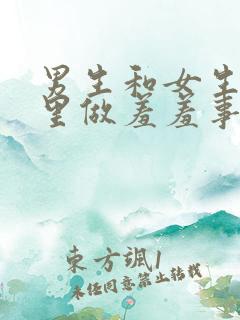 男生和女生
里做羞羞事
東方颯1
未经同意禁止转载